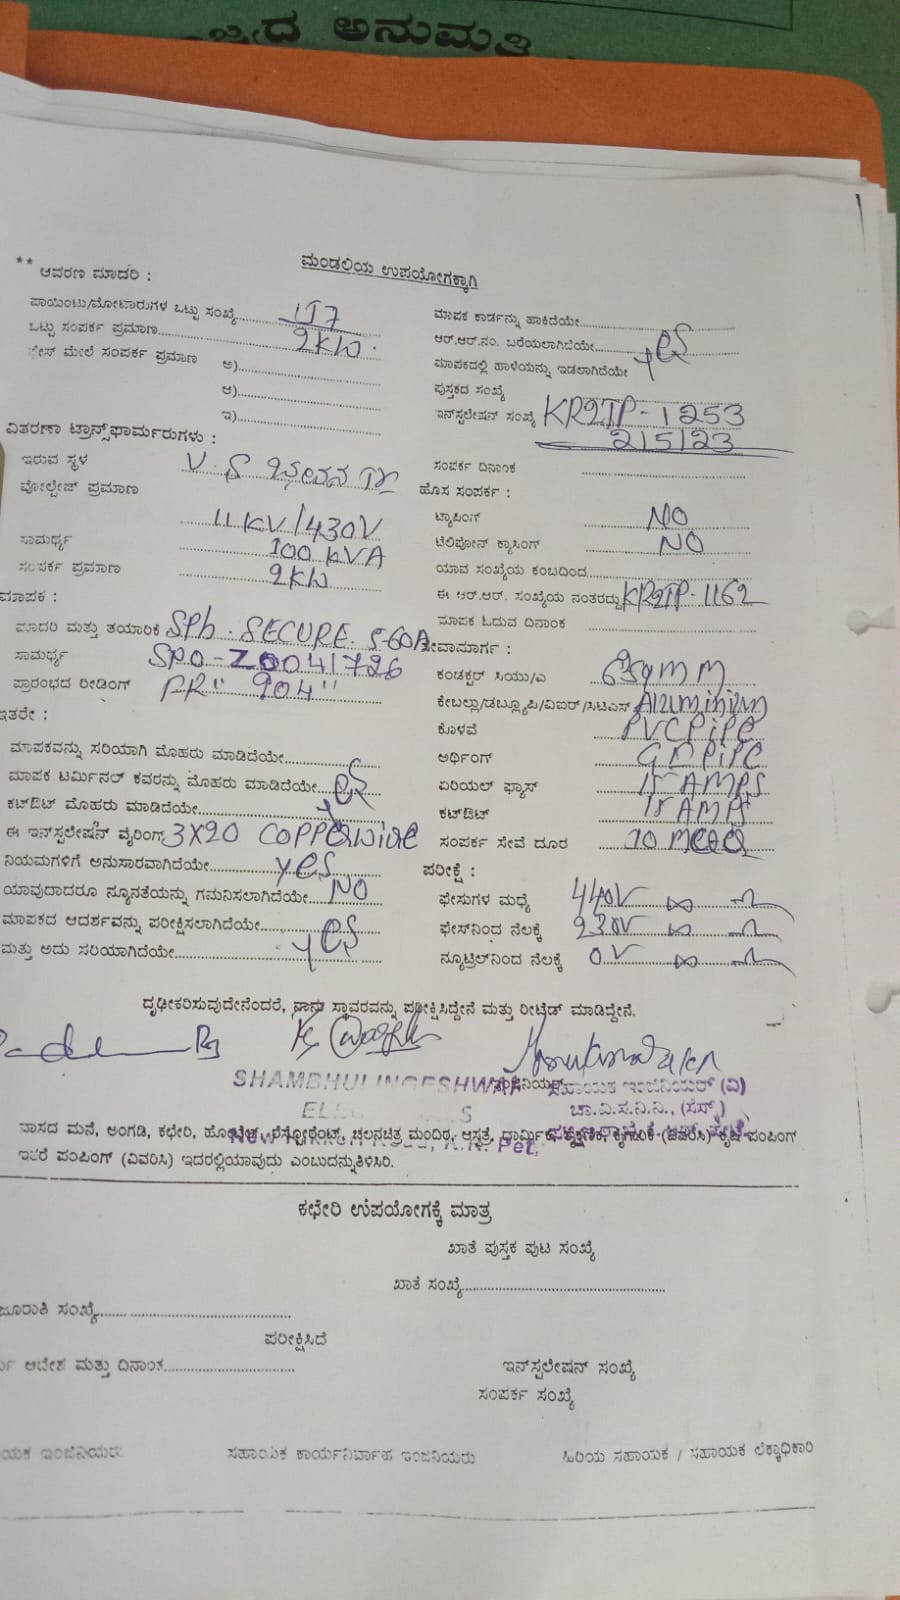 ದ ಅನುಮತಿ
ಮಂಡಲಿಯ ಉಪಯೋಗಕ್ಕಾಗಿ
** ಆವರಣ ಮಾದರಿ :
ಪಾಯಿಂಟು/ಮೋಟಾರುಗಳ ಒಟ್ಟು ಸಂಖ್ಯೆ
ಒಟ್ಟು ಸಂಪರ್ಕ ಪ್ರಮಾಣ 2KW
ಮೇಲೆ ಸಂಪರ್ಕ ಪ್ರಮಾಣ ಅ)
ಆ)
ಇ)
ವಿತರಣಾ ಟ್ರಾನ್ಸ್‌ಫಾರ್ಮರುಗಳು :
ಇರುವ ಸ್ಥಳ V.S ಭವನ
ವೋಲ್ಟೇಜ್ ಪ್ರಮಾಣ 11 KV/430V
ಸಾಮರ್ಥ್ಯ 100 KVA
ಸಂಪರ್ಕ ಪ್ರಮಾಣ 2KW
ಮಾಪಕ :
ಮಾದರಿ ಮತ್ತು ತಯಾರಿಕೆ SPh. SECURE. 5-60A
ಸಾಮರ್ಥ್ಯ SPO-Z0041726
ಪ್ರಾರಂಭದ ರೀಡಿಂಗ್ FR" 904"
ಇತರೇ :
ಮಾಪಕವನ್ನು ಸರಿಯಾಗಿ ಮೊಹರು ಮಾಡಿದೆಯೇ
ಮಾಪಕ ಟರ್ಮಿನಲ್ ಕವರನ್ನು ಮೊಹರು ಮಾಡಿದೆಯೇ yes
ಕಟ್‌ಔಟ್ ಮೊಹರು ಮಾಡಿದೆಯೇ
ಈ ಇನ್‌ಸ್ಟಲೇಷನ್ ವೈರಿಂಗ್ 3X20 COPPER wire
ನಿಯಮಗಳಿಗೆ ಅನುಸಾರವಾಗಿದೆಯೇ yes
ಯಾವುದಾದರೂ ನ್ಯೂನತೆಯನ್ನು ಗಮನಿಸಲಾಗಿದೆಯೇ NO
ಮಾಪಕದ ಆದರ್ಶವನ್ನು ಪರೀಕ್ಷಿಸಲಾಗಿದೆಯೇ
ಮತ್ತು ಅದು ಸರಿಯಾಗಿದೆಯೇ yes
ಮಾಪಕ ಕಾರ್ಡನ್ನು ಹಾಕಿದೆಯೇ
ಆರ್.ಆರ್.ನಂ. ಬರೆಯಲಾಗಿದೆಯೇ yes
ಮಾಪಕದಲ್ಲಿ ಹಾಳೆಯನ್ನು ಇಡಲಾಗಿದೆಯೇ
ಪುಸ್ತಕದ ಸಂಖ್ಯೆ
ಇನ್‌ಸ್ಟಲೇಷನ್ ಸಂಖ್ಯೆ KR2TP-1253
2/5/23
ಸಂಪರ್ಕ ದಿನಾಂಕ
ಹೊಸ ಸಂಪರ್ಕ :
ಟ್ಯಾಪಿಂಗ್ NO
ಟೆಲಿಫೋನ್ ಕ್ರಾಸಿಂಗ್ NO
ಯಾವ ಸಂಖ್ಯೆಯ ಕಂಬದಿಂದ
ಈ ಆರ್.ಆರ್. ಸಂಖ್ಯೆಯ ನಂತರದ್ದು KR2TP-1162
ಮಾಪಕ ಓದುವ ದಿನಾಂಕ
ಸೇವಾಮಾರ್ಗ :
ಕಂಡಕ್ಟರ್ ಸಿಯು/ಎ
ಕೇಬಲ್ಲು/ಡಬ್ಲ್ಯೂಪಿ/ವಿಐಆರ್/ಸಿಟಿಎಸ್ Aluminium
ಕೊಳವೆ PVC PiPe
ಅರ್ಥಿಂಗ್ GI PiPe
ಏರಿಯಲ್ ಫ್ಯೂಸ್ 15 AMPS
ಕಟ್‌ಔಟ್ 15 AMPS
ಸಂಪರ್ಕ ಸೇವೆ ದೂರ 10
ಪರೀಕ್ಷೆ :
ಫೇಸುಗಳ ಮಧ್ಯೆ 440V
ಫೇಸ್‌ನಿಂದ ನೆಲಕ್ಕೆ 230V
ನ್ಯೂಟ್ರಲ್‌ನಿಂದ ನೆಲಕ್ಕೆ 0V
ದೃಢೀಕರಿಸುವುದೇನೆಂದರೆ, ನಾನು ಸ್ಥಾವರವನ್ನು ಪರೀಕ್ಷಿಸಿದ್ದೇನೆ ಮತ್ತು ರೀಟೈಡ್ ಮಾಡಿದ್ದೇನೆ.
SHAMBHULINGESHWARA
ಸಹಾಯಕ ಇಂಜಿನಿಯರ್ (ವಿ)
ಚಾ.ವಿ.ಸ.ನಿ.ನಿ.,
ವಾಸದ ಮನೆ, ಅಂಗಡಿ, ಕಛೇರಿ, ಹೊಟೇಲ್, ರೆಸ್ಟೋರೆಂಟ್, ಚಲನಚಿತ್ರ ಮಂದಿರ, ಆಸ್ಪತ್ರೆ, ಧಾರ್ಮಿಕ, ಶೈಕ್ಷಣಿಕ, ಕೈಗಾರಿಕೆ (ವಿವರಿಸಿ) ಕೃಷಿ ಪಂಪಿಂಗ್
ಇತರೆ ಪಂಪಿಂಗ್ (ವಿವರಿಸಿ) ಇದರಲ್ಲಿಯಾವುದು ಎಂಬುದನ್ನುತಿಳಿಸಿರಿ.
ಕಛೇರಿ ಉಪಯೋಗಕ್ಕೆ ಮಾತ್ರ
ಖಾತೆ ಪುಸ್ತಕ ಪುಟ ಸಂಖ್ಯೆ
ಖಾತೆ ಸಂಖ್ಯೆ
ಜೂರಾತಿ ಸಂಖ್ಯೆ
ಪರೀಕ್ಷಿಸಿದೆ
ಆದೇಶ ಮತ್ತು ದಿನಾಂಕ
ಇನ್‌ಸ್ಟಲೇಷನ್ ಸಂಖ್ಯೆ
ಸಂಪರ್ಕ ಸಂಖ್ಯೆ
ಯಕ ಇಂಜಿನಿಯರು
ಸಹಾಯಕ ಕಾರ್ಯನಿರ್ವಾಹ ಇಂಜಿನಿಯರು
ಹಿರಿಯ ಸಹಾಯಕ / ಸಹಾಯಕ ಲೆಕ್ಕಾಧಿಕಾರಿ